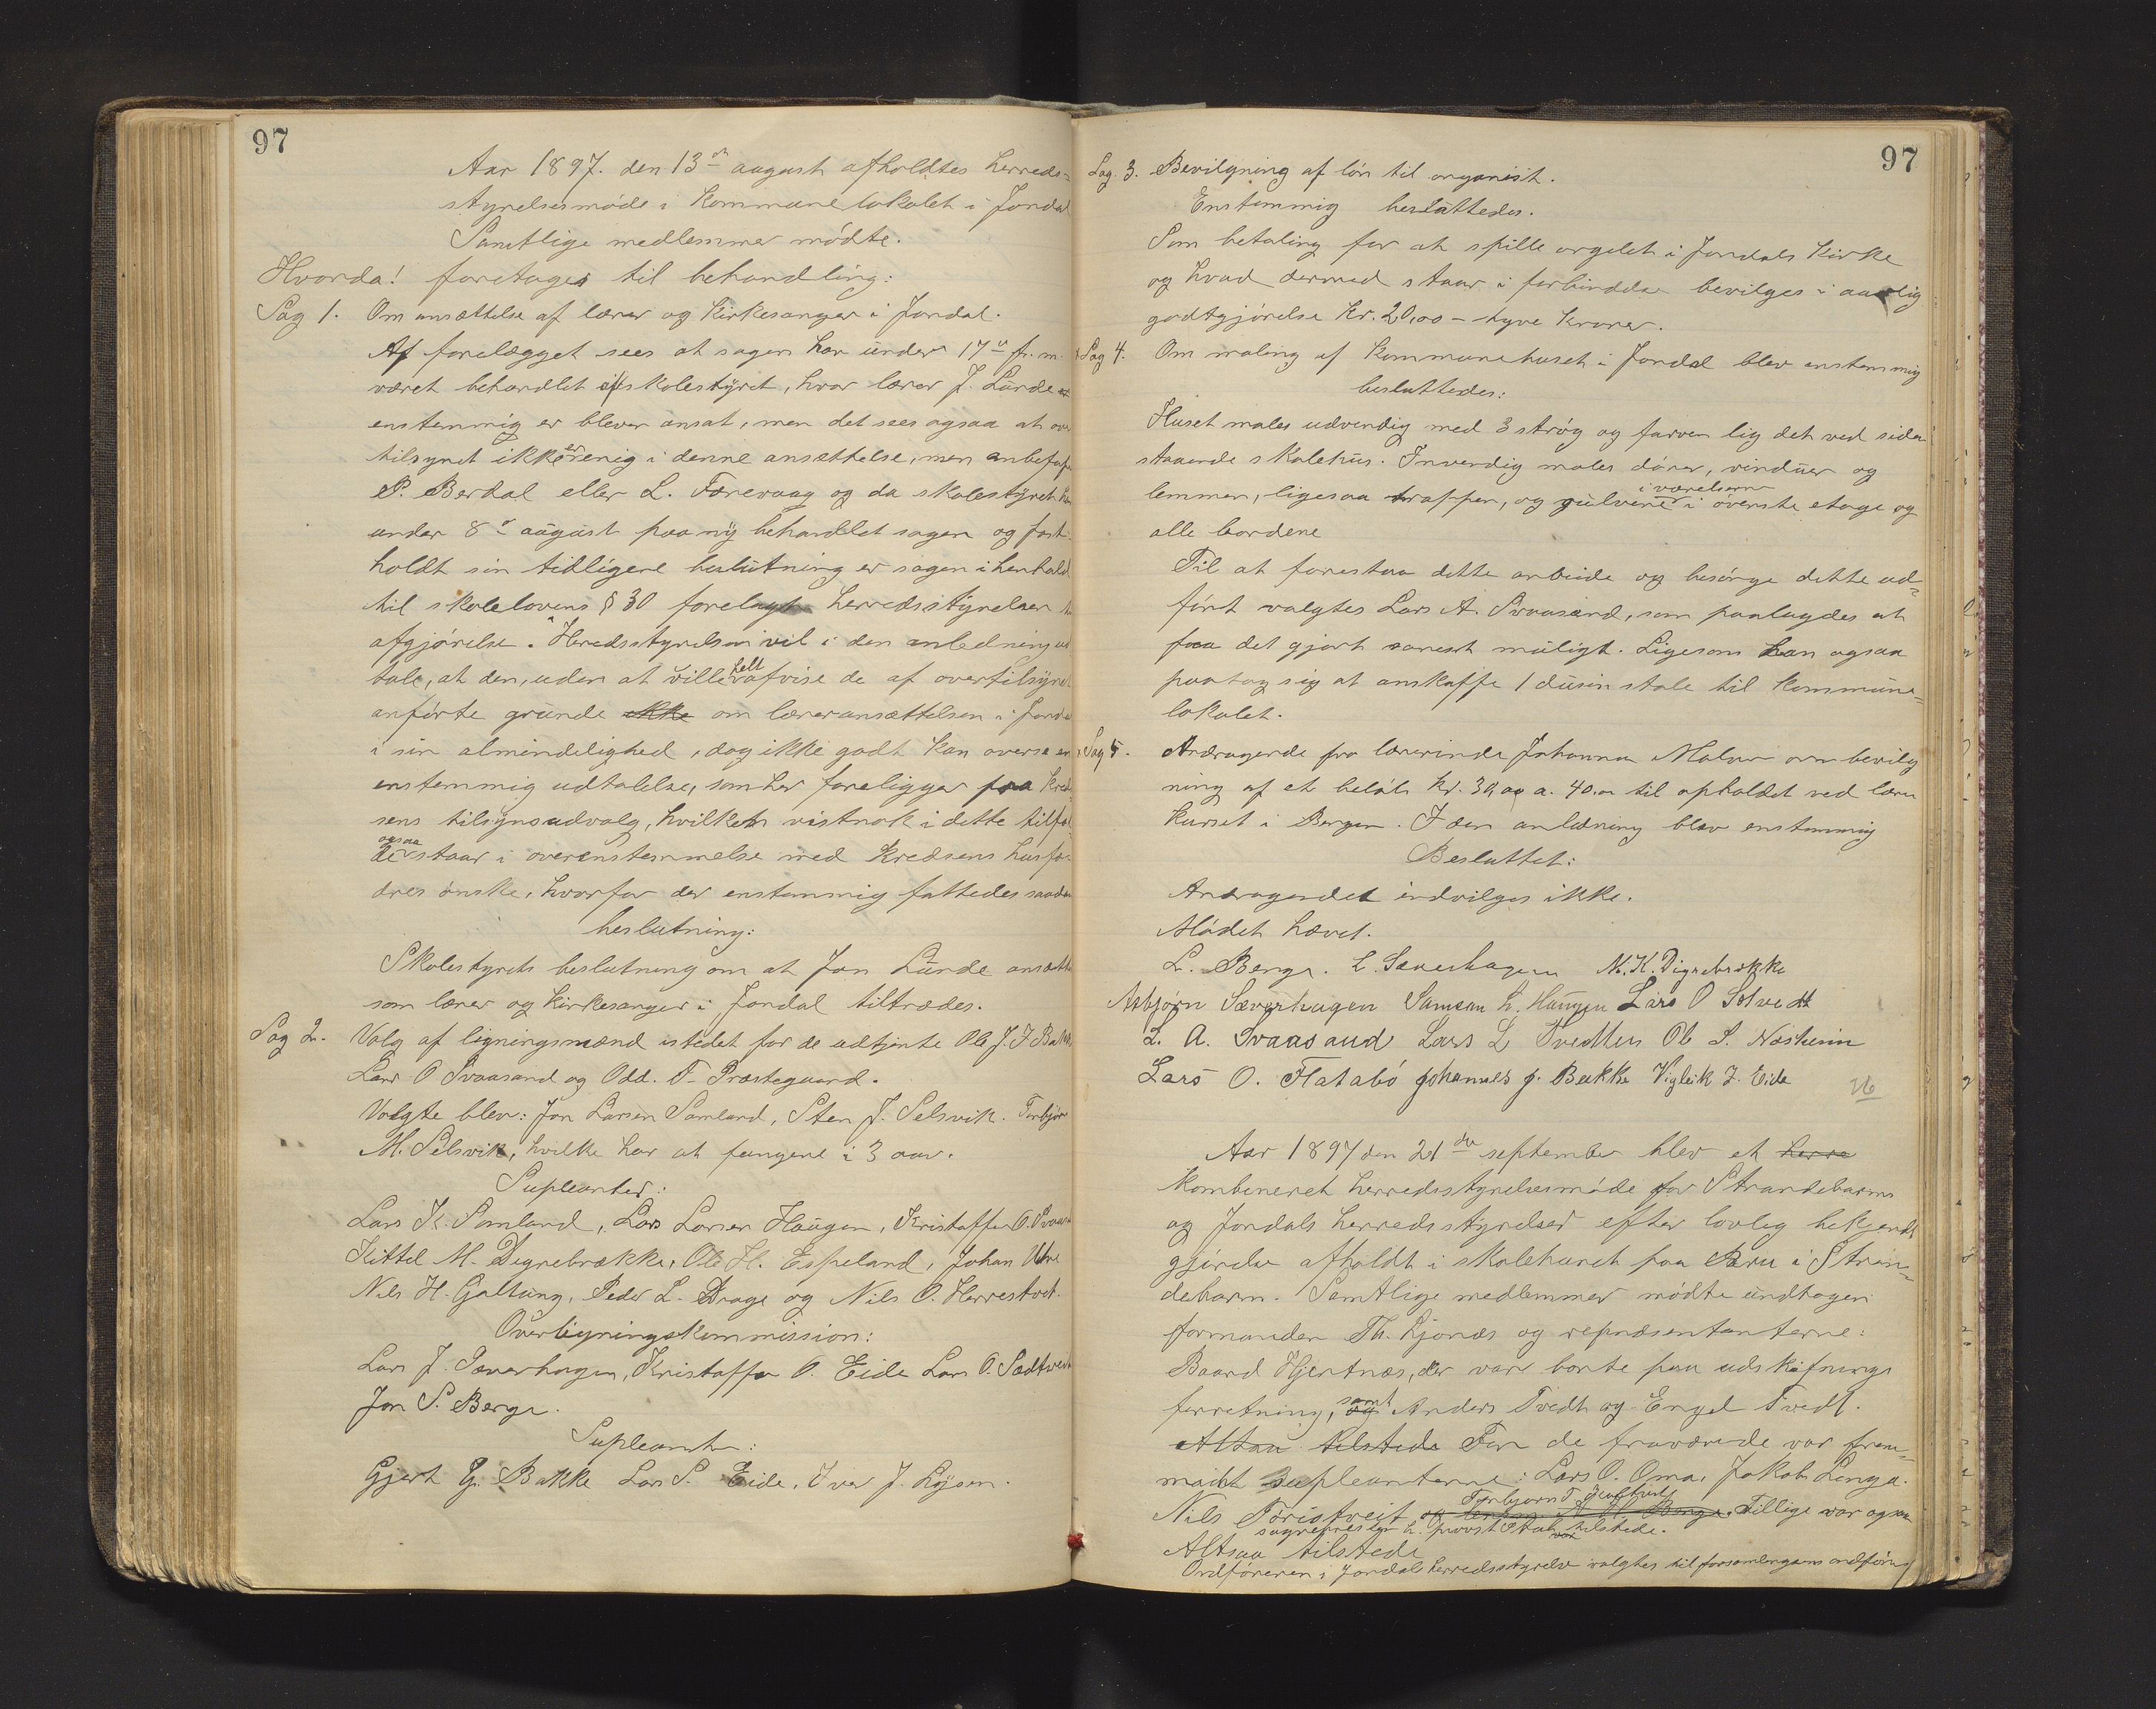 97
Aar 1897. den 13de august afholdtes herreds-
styrelsesmøde i Kommunelokalet i Jondal
Samtlige medlemmer mødte.
Hvorda! foretages til behandling:
Sag 1. Om ansættelse af lærer og Kirkesanger i Jondal.
Af forelægget sees at sagen har under 17de fr. m.
været behandlet af skolestyret, hvor lærer J. Lunde
enstemmig er bleven ansat, men det sees ogsaa at over
tilsynet ikke er enig i denne ansættelse, men anbefaler
P. Berdal eller L. Førevaag og da skolestyret har
under 8de august paa ny behandlet sagen og fast-
holdt sin tidligere beslutning er sagen i henhold
til skolelovens § 30 forelagt herredsstyrelsen til
afgjørelse. Heredsstyrelsen vil i den anledning ud
tale, at den, uden at ville helt afvise de af overtilsynet
anførte grunde ikke om læreransættelsen i Jondal
i sin almindelighed, dog ikke godt kan overse en
enstemmig udtalelse, som her foreligger fra Kred-
sens tilsynsudvalg, hvilket vistnok i dette tilfæl
de ogsaa staar i overenstemmelse med Kredsens husfæ-
dres ønske, hvorfor der enstemmig fattedes saadan
beslutning:
Skolestyrets beslutning om at Jon Lunde ansættes
som lærer og Kirkesanger i Jondal tiltrædes.
Sag 2. Valg af ligningsmænd istedet for de udtjente Ole J. J. Bakke
Lars O Svaasand og Odd. T. Præstegaard.
Valgte blev: Jon Larsen Samland, Sten J. Selsvik. Torbjørn
M. Selsvik, hvilke har at fungere i 3 aar.
Supleanter:
Lars K. Samland, Lars Larsen Haugen, Kristoffer O. Svaasand
Kittel M. Digrebrække, Ole H. Espeland, Johan Utne
Nils H. Galtung, Peder L. Drage og Nils O. Herrestvet.
Overligningskommission:
Lars J. Sæverhagen, Kristoffer O. Eide Lars O. Sædtveit
Jon S. Berge.
Supleant:
Gjert G. Bakke Lars S. Eide, Iver J. Lyse.
97
Sag. 3. Bevilgning af løn til organist.
Enstemmig besluttedes.
Som betaling for at spille orgelet i Jondals Kirke
og hvad dermed staar i forbindelse bevilges i aarlig
godtgjørelse Kr. 20,00 – tyve Kroner.
Sag 4. Om maling af Kommunehuset i Jondal blev enstemmig
besluttedes:
Huset males udvendig med 3 strøg og farven lig det ved siden
staaende skolehus. Invendig males dører, vinduer og
lemmer, ligesaa trappen, og gulvene i værelserne i øverste etage og
alle bordene
Til at forestaa dette arbeide og besørge dette ud-
ført valgtes Lars A. Svaasand, som paalagdes at
faa det gjort snarest muligt. Ligesom han ogsaa
paatog sig at anskaffe 1 dusin stole til Kommune-
lokalet.
Sag 5. Andragende fra lærerinde Johanna Malen om bevilg
ning af et beløb Kr. 30,00 a. 40.00 til opholdet ved lærer
Kurset i Bergen. I den anledning blev enstemmig
Besluttet:
Andragendet indvilges ikke.
Mødet hævet.
L. Berge. L. Sæverhagen N. K. Digrebrække
Asbjørn Sæverhagen Samson L. Haugen Lars O Solvedt
L. A. Svaasand Lars L Tvedten Ole S. Næsheim
Lars O. Flatabø Johannes J. Bakke Vigleik J. Eide
26
Aar 1897 den 21de september blev et herre
Kombineret herredsstyrelsesmøde for Strandebarms
og Jondals herredsstyrelser efter lovlig bekjendt
gjørelse afholdt i skolehuset paa Bru i Stran-
debarm. Samtlige medlemmer mødte undtagen
formanden Th. Ljonæs og repræsentanterne:
Baard Hjertnæs, der var borte paa udskifnings
forretning, og samt Anders Tvedt og Engel Tvedt.
Altsaa tilstede For de fraværende var frem-
mødt supleanterne: Lars O. Oma, Jakob Linga.
Nils Toristveit Tillige var ogsaa
provst tilstede.
Altsaa tilstede
Ordføreren i Jondals herredsstyrelse valgtes til forsamlingens ordfører